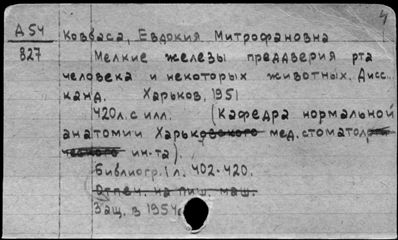 4
А54 Ковбаса, Евдокия Митрофановна
827 Мелкие железы преддверия рта
человека и некоторых животных. Дисс..
канд. Харьков, 1951
420л. с илл. (Кафедра нормальной
анатомии Харьковского мед. стоматологического
ин-та).
Библиогр. 1 л. 402-420.
Отпеч. на пиш. маш.
Защ. в 1954г